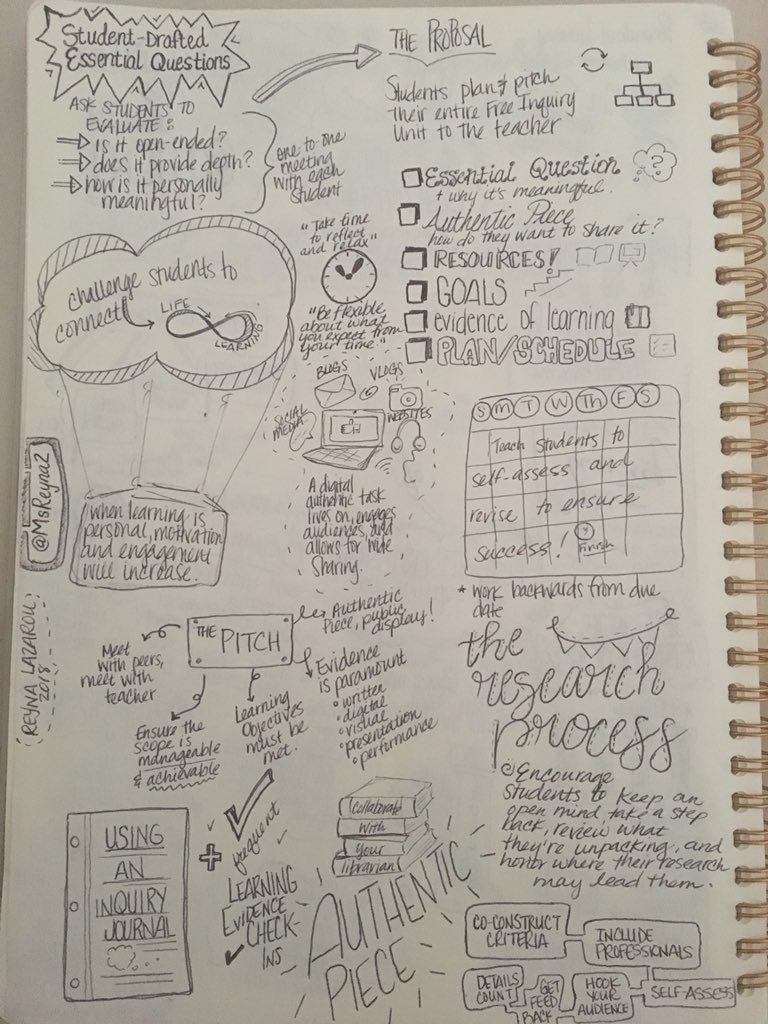 Student-Drafted
Essential Questions
ASK STUDENTS TO
EVALUATE:
is it open-ended?
does it provide depth?
how is it personally
meaningful?
one-to-one
meeting
with each
student
THE PROPOSAL
Students plan & pitch
their entire Free Inquiry
Unit to the teacher
Essential Question
+ why it's meaningful.
Authentic Piece
how do they want to share it?
RESOURCES!
GOALS
evidence of learning
PLAN/SCHEDULE
"Take time
to reflect
and relax"
"Be flexible
about what
you expect from
your time."
challenge students to
connect
LIFE
LEARNING
when learning is
personal, motivation
and engagement
will increase.
@MsReyna2
REYNA LAZAROU
2018
BLOGS
VLOGS
SOCIAL
MEDIA
WEBSITES
A digital
authentic task
lives on, engages
audiences, and
allows for wide
sharing.
S M T W Th F S
Teach students to
self-assess and
revise to ensure
success!
Finish
* work backwards from due
date
THE PITCH
Authentic
Piece, public
display!
Meet
with peers,
meet with
teacher
Ensure the
scope is
manageable
& achievable
Learning
Objectives
must be
met.
Evidence
is paramount
• written
• digital
• visual
• presentation
• performance
the
research
process
Encourage
students to keep an
open mind take a step
back, review what
they're unpacking, and
honor where their research
may lead them.
USING
AN
INQUIRY
JOURNAL
+
frequent
LEARNING
EVIDENCE
CHECK-
INS
Collaborate
with
your
librarian
AUTHENTIC
PIECE
CO-CONSTRUCT
CRITERIA
INCLUDE
PROFESSIONALS
DETAILS
COUNT
GET
FEED
BACK
HOOK
YOUR
AUDIENCE
SELF-ASSESS